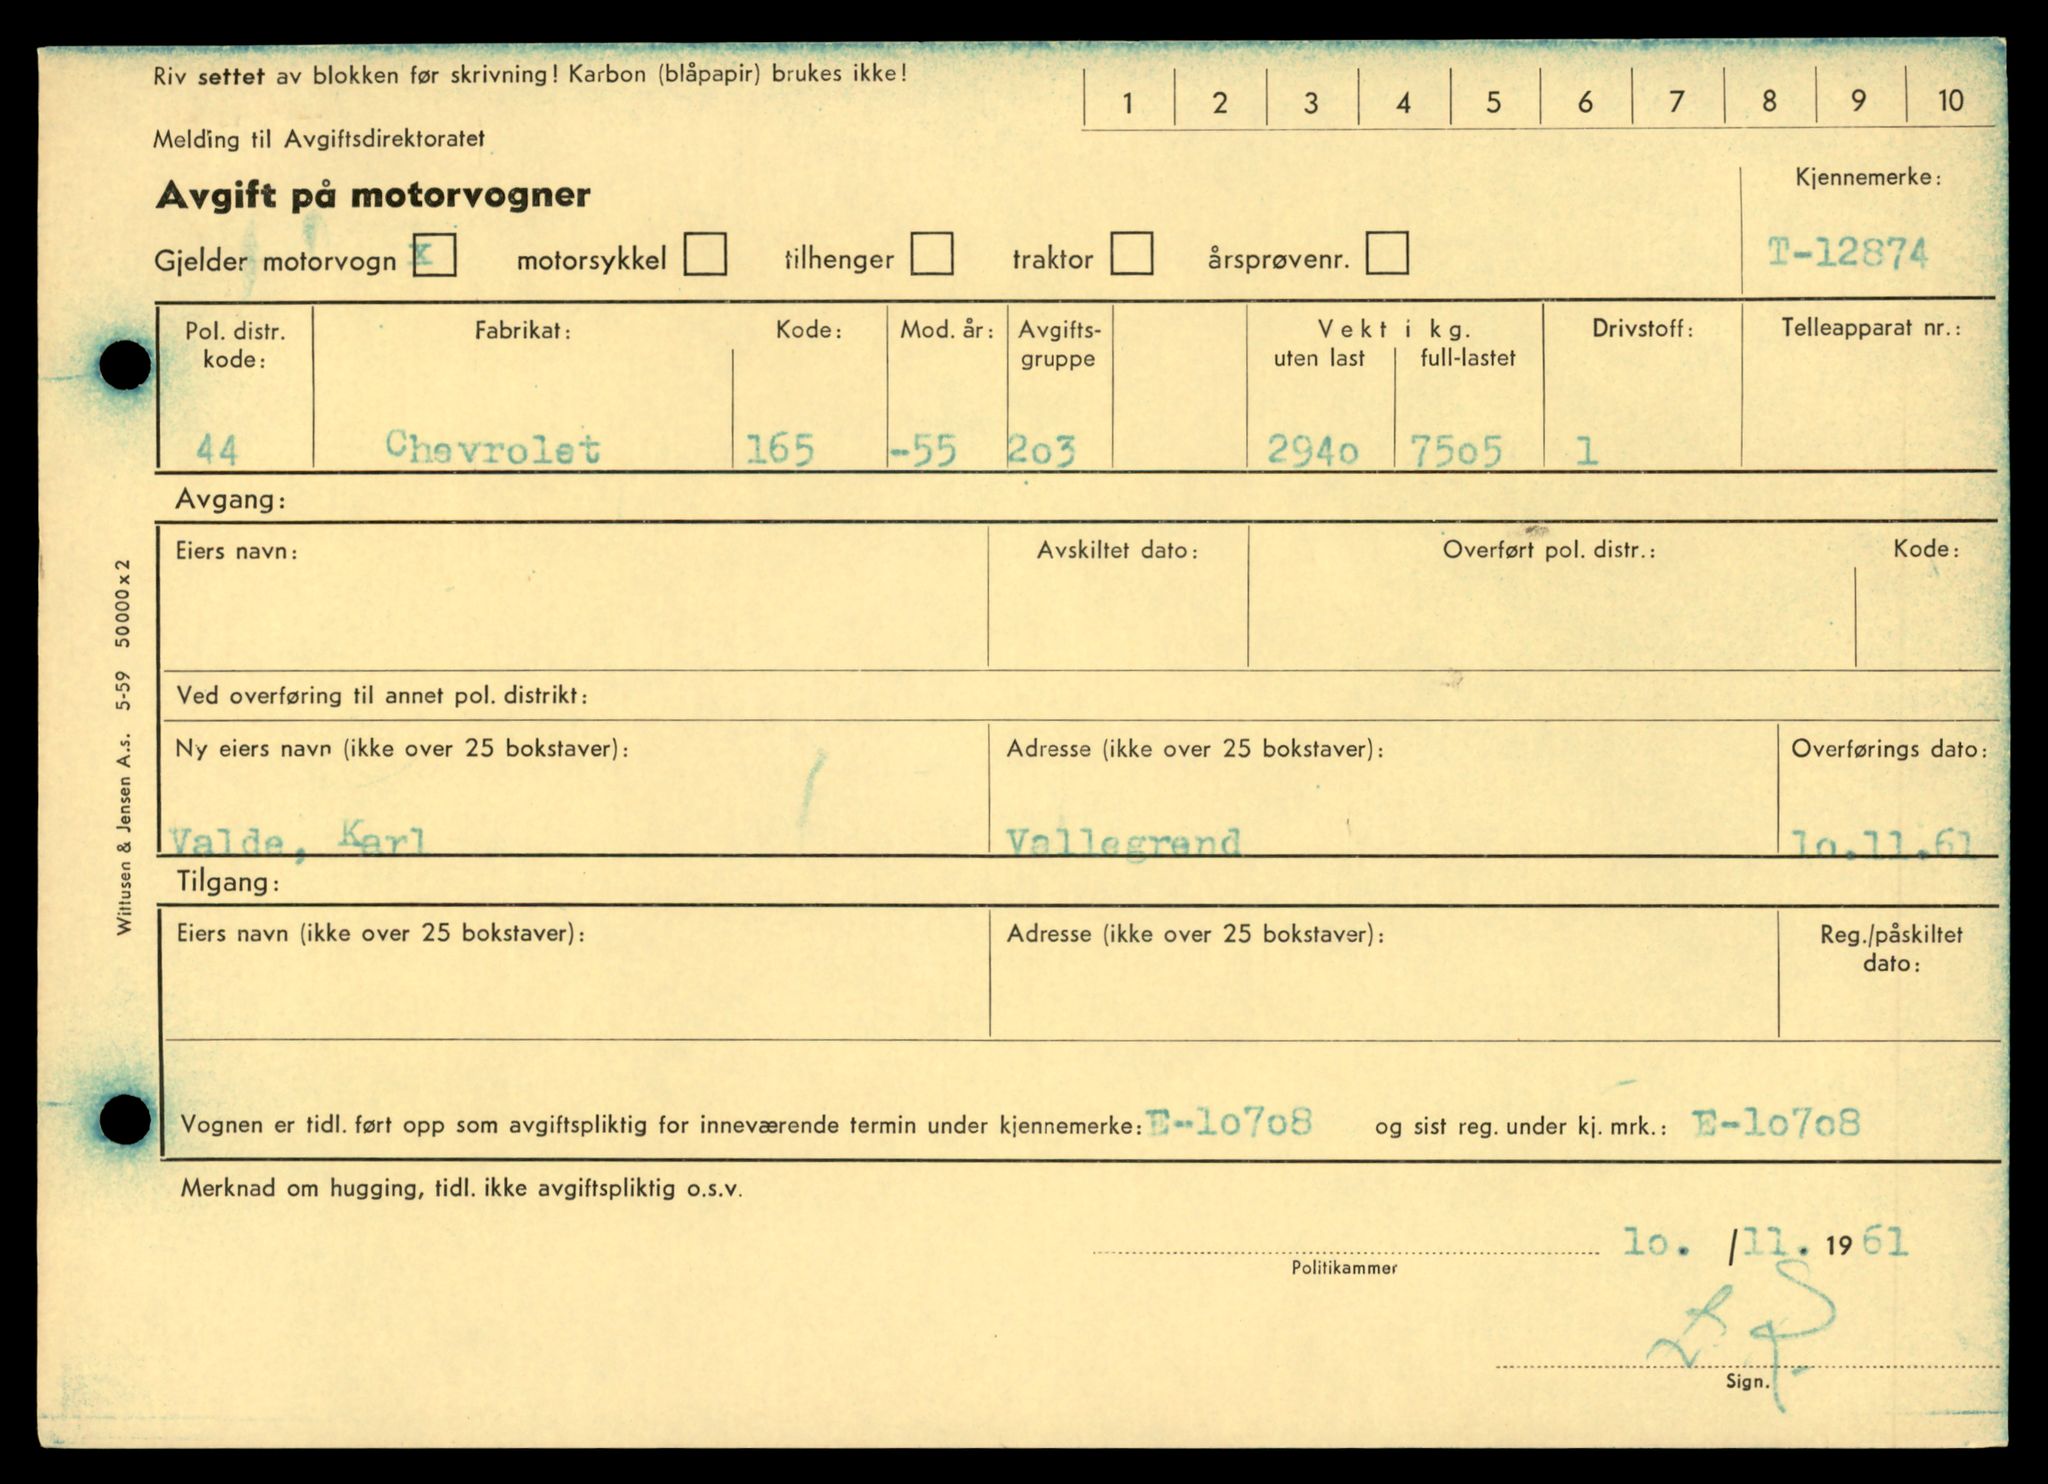 Riv settet av blokken før skrivning! Karbon (blåpapir) brukes ikke!
1 2 3 4 5 6 7 8 9 10
Melding til Avgiftsdirektoratet
Avgift på motorvogner
Kjennemerke:
Gjelder motorvogn x motorsykkel tilhenger traktor årsprøvenr.
T-12874
Pol. distr. kode: Fabrikat: Kode: Mod. år: Avgifts-gruppe Vekt i kg. uten last full-lastet Drivstoff: Telleapparat nr.:
44 Chevrolet 165 -55 2o3 294o 75o5 1
Avgang:
Eiers navn: Avskiltet dato: Overført pol. distr.: Kode:
Ved overføring til annet pol. distrikt:
Ny eiers navn (ikke over 25 bokstaver): Adresse (ikke over 25 bokstaver): Overførings dato:
Valde, Karl Vallegrend 1o.11.61
Tilgang:
Eiers navn (ikke over 25 bokstaver): Adresse (ikke over 25 bokstaver): Reg./påskiltet dato:
Vognen er tidl. ført opp som avgiftspliktig for inneværende termin under kjennemerke: E-1o7o8 og sist reg. under kj. mrk.: E-1o7o8
Merknad om hugging, tidl. ikke avgiftspliktig o.s.v.
1o. /11. 1961
Politikammer
Sign.
Wittusen & Jensen A.s. 5-59 50000x2